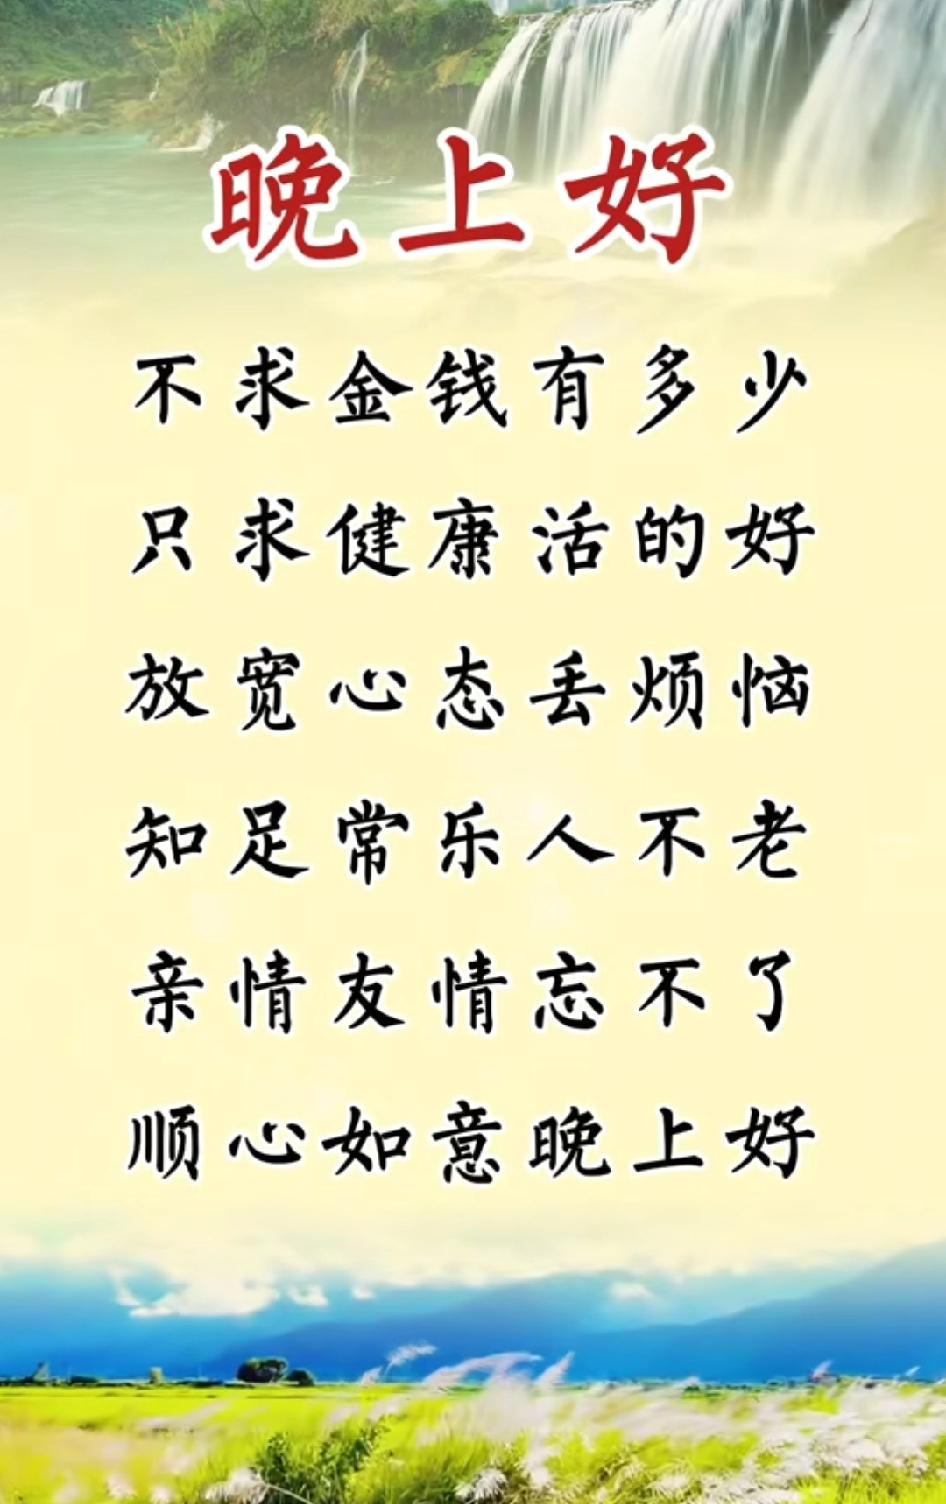 晚上好
不求金钱有多少
只求健康活的好
放宽心态丢烦恼
知足常乐人不老
亲情友情忘不了
顺心如意晚上好